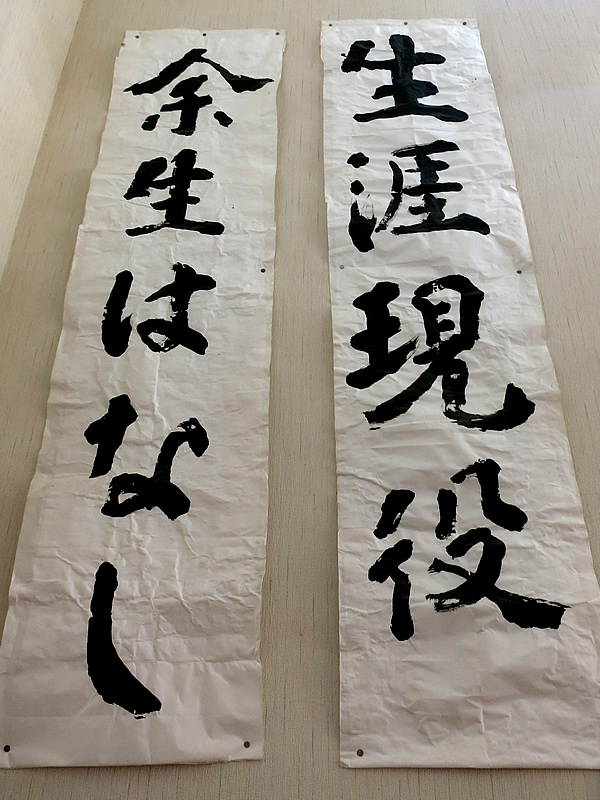 生涯現役
余生はなし